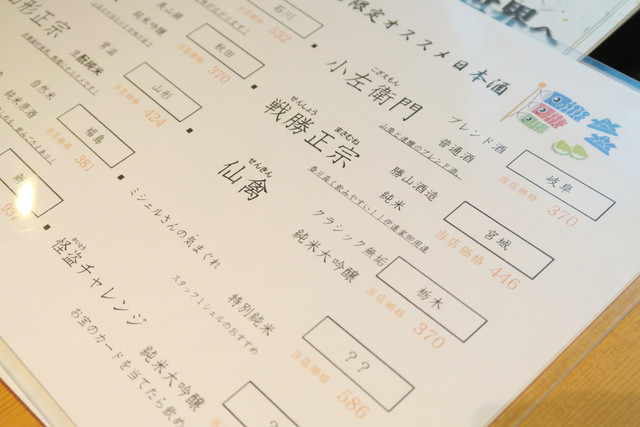 限定オススメ日本酒
世界へ
こざえもん
小左衛門
ブレンド酒
普通酒
山廃と速醸のブレンド酒。
岐阜
当店価格 370
せんしょう まさむね
戦勝正宗
勝山酒造
純米
香り高く飲みやすい!!伊達家御用達
宮城
当店価格 446
せんきん
仙禽
クラシック無垢
純米大吟醸
栃木
当店価格 370
ミシェルさんの気まぐれ
特別純米
スタッフミシェルのおすすめ
??
当店価格 586
かいとう
怪盗チャレンジ
純米大吟醸
お宝のカードを当てたら飲め
?
石川
532
美山錦
純米吟醸
秋田
当店価格 370
形正宗
常温
生酛純米
山形
当店価格 424
自然米
純米原酒
福島
当店価格 381
新